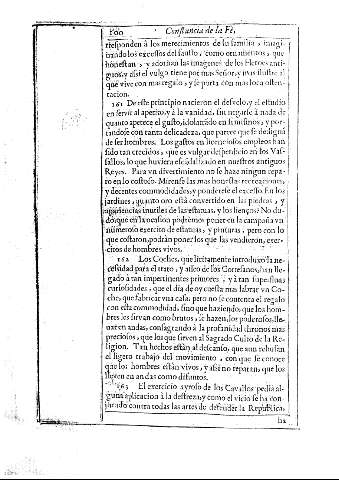 100 Constancia de la Fè,
responden à los merecimientos de su familia, imagi-
nando los excessos del fausto, como ornamentos, que
honestan, y adornan las imagenes de los Heroes anti-
guos, y assi el vulgo tiene por mas Señor, y mas ilustre al
que vive con mas regalo, y se porta con mas loca osten-
tacion.
161 De este principio nacieron el desvelo, y el estudio
en servir al apetito, y à la vanidad, sin negarse à nada de
quanto apetece el gusto, idolatrado en si mismos, y por-
tandose con tanta delicadeza, que parece que se desdigna
de ser hombres. Los gastos en licenciosos empleos han
sido tan crecidos, que es vulgar desperdicio en los Vas-
sallos, lo que huviera escãdalizado en nuestros antiguos
Reyes. Para vn divertimento no se haze ningun repa-
ro en lo costoso. Mirense las mas honestas recreaciones,
y decentes commodidades, y ponderese el excesso. En los
jardines, quanto oro està convertido en las piedras, y
apariencias inutiles de las estatuas, y los lienços? No du-
do, que en la ocasion podrèmos poner en la campaña vn
numeroso exercito de estatuas, y pinturas, pero con lo
que costaron, podràn poner los que las vendieron, exer-
citos de hombres vivos.
162 Los Coches, que licitamente introduxo la ne-
cessidad para el trato, y asseo de los Cortesanos, han lle-
gado à tan impertinentes primores, y à tan superfluas
curiosidades, que el dia de oy cuesta mas labrar vn Co-
che, que fabricar vna casa: pero no se contenta el regalo
con esta commodidad, sino que haziendo, que los hom-
bres les sirvan como brutos, se hazen, los poderosos, lle-
var en andas, consagrando à la profanidad thronos mas
preciosos, que los que sirven al Sagrado Culto de la Re-
ligion. Tan hechos estàn al descanso, que aun rehusan
el ligero trabajo del movimiento, con que se conoce
que los hombres estàn vivos, y assi no reparan, que los
lleven en andas como difuntos.
163 El exercicio ayroso de los Cavallos pedia al-
guna aplicacion à la destreza, y como el vicio se ha con-
jurado contra todas las artes de defender la Republica,
ha